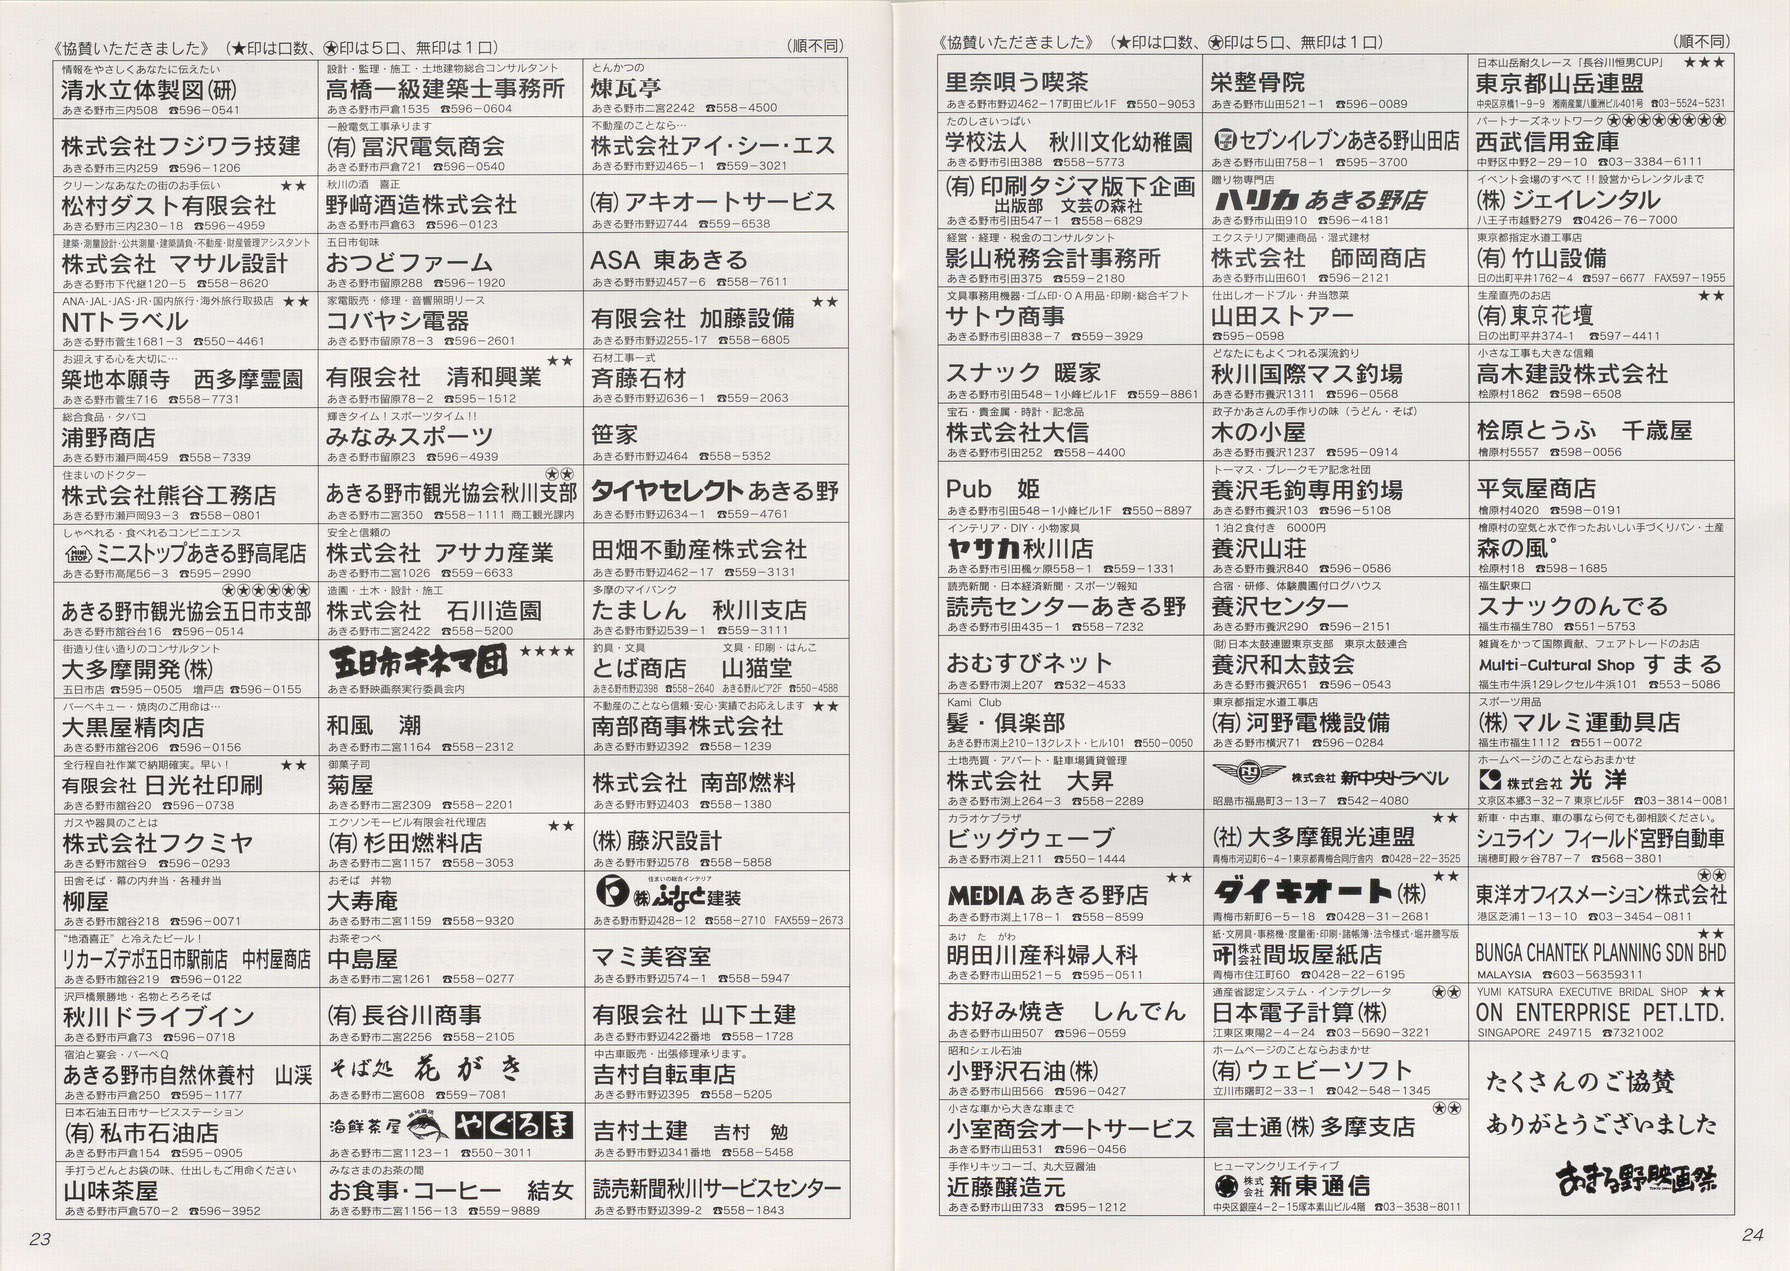 《協賛いただきました》（★印は口数、✪印は５口、無印は１口）
（順不同）
情報をやさしくあなたに伝えたい
清水立体製図(研)
あきる野市三内508　☎596−0541
株式会社フジワラ技建
あきる野市三内259　☎596−1206
クリーンなあなたの街のお手伝い　★★
松村ダスト有限会社
あきる野市三内230−18　☎596−4959
建築・測量設計・公共測量・建築請負・不動産・財産管理アシスタント
株式会社 マサル設計
あきる野市下代継120−5　☎558−8620
ANA･JAL･JAS･JR･国内旅行･海外旅行取扱店　★★
NTトラベル
あきる野市菅生1681−3　☎550−4461
お迎えする心を大切に…
築地本願寺　西多摩霊園
あきる野市菅生716　☎558−7731
総合食品・タバコ
浦野商店
あきる野市瀬戸岡459　☎558−7339
住まいのドクター
株式会社熊谷工務店
あきる野市瀬戸岡93−3　☎558−0801
しゃべれる・食べれるコンビニエンス
MINI STOP ミニストップあきる野高尾店
あきる野市高尾56−3　☎595−2990
✪✪✪✪✪✪
あきる野市観光協会五日市支部
あきる野市舘谷台16　☎596−0514
街造り住い造りのコンサルタント
大多摩開発(株)
五日市店 ☎595−0505　増戸店 ☎596−0155
バーベキュー・焼肉のご用命は…
大黒屋精肉店
あきる野市舘谷206　☎596−0156
全行程自社作業で納期確実。早い！　★★
有限会社 日光社印刷
あきる野市舘谷20　☎596−0738
ガスや器具のことは
株式会社フクミヤ
あきる野市舘谷9　☎596−0293
田舎そば・幕の内弁当・各種弁当
柳屋
あきる野市舘谷218　☎596−0071
“地酒喜正”と冷えたビール！
リカーズデポ五日市駅前店　中村屋商店
あきる野市舘谷219　☎596−0122
沢戸橋景勝地・名物とろろそば
秋川ドライブイン
あきる野市戸倉73　☎596−0718
宿泊と宴会・バーベQ
あきる野市自然休養村　山渓
あきる野市戸倉250　☎595−1177
日本石油五日市サービスステーション
(有)私市石油店
あきる野市戸倉154　☎595−0905
手打うどんとお袋の味、仕出しもご用命ください
山味茶屋
あきる野市戸倉570−2　☎596−3952
設計・監理・施工・土地建物総合コンサルタント
高橋一級建築士事務所
あきる野市戸倉1535　☎596−0604
一般電気工事承ります
(有)冨沢電気商会
あきる野市戸倉721　☎596−0540
秋川の酒　喜正
野﨑酒造株式会社
あきる野市戸倉63　☎596−0123
五日市旬味
おつどファーム
あきる野市留原288　☎596−1920
家電販売・修理・音響照明リース
コバヤシ電器
あきる野市留原78−3　☎596−2601
★★
有限会社　清和興業
あきる野市留原78−2　☎595−1512
輝きタイム！スポーツタイム!!
みなみスポーツ
あきる野市留原23　☎596−4939
✪✪
あきる野市観光協会秋川支部
あきる野市二宮350　☎558−1111 商工観光課内
安全と信頼の
株式会社 アサカ産業
あきる野市二宮1026　☎559−6633
造園・土木・設計・施工
株式会社　石川造園
あきる野市二宮2422　☎558−5200
五日市キネマ団　★★★★
あきる野映画祭実行委員会内
和風　潮
あきる野市二宮1164　☎558−2312
御菓子司
菊屋
あきる野市二宮2309　☎558−2201
エクソンモービル有限会社代理店　★★
(有)杉田燃料店
あきる野市二宮1157　☎558−3053
おそば　丼物
大寿庵
あきる野市二宮1159　☎558−9320
お茶ぞっぺ
中島屋
あきる野市二宮1261　☎558−0277
(有)長谷川商事
あきる野市二宮2256　☎558−2105
そば処　花がき
あきる野市二宮608　☎559−7081
海鮮茶屋　築地直送　やぐるま
あきる野市二宮1123−1　☎550−3011
みなさまのお茶の間
お食事・コーヒー　結女
あきる野市二宮1156−13　☎559−9889
とんかつの
煉瓦亭
あきる野市二宮2242　☎558−4500
不動産のことなら…
株式会社アイ・シー・エス
あきる野市野辺465−1　☎559−3021
(有)アキオートサービス
あきる野市野辺744　☎559−6538
ASA 東あきる
あきる野市野辺457−6　☎558−7611
★★
有限会社 加藤設備
あきる野市野辺255-17　☎558−6805
石材工事一式
斉藤石材
あきる野市野辺636−1　☎559−2063
笹家
あきる野市野辺464　☎558−5352
タイヤセレクトあきる野
あきる野市野辺634−1　☎559−4761
田畑不動産株式会社
あきる野市野辺462−17　☎559−3131
多摩のマイバンク
たましん　秋川支店
あきる野市野辺539−1　☎559−3111
釣具・文具　文具・印刷・はんこ
とば商店　山猫堂
あきる野市野辺398　☎558−2640　あきる野ルピア2F　☎550−4588
不動産のことなら信頼・安心・実績でお応えします　★★
南部商事株式会社
あきる野市野辺392　☎558−1239
株式会社 南部燃料
あきる野市野辺403　☎558−1380
(株)藤沢設計
あきる野市野辺578　☎558−5858
住まいの総合インテリア
(株)ふなき建装
あきる野市野辺428−12　☎558−2710　FAX559−2673
マミ美容室
あきる野市野辺574−1　☎558−5947
有限会社 山下土建
あきる野市野辺422番地　☎558−1728
中古車販売・出張修理承ります。
吉村自転車店
あきる野市野辺395　☎558−5205
吉村土建　吉村　勉
あきる野市野辺341番地　☎558−5458
読売新聞秋川サービスセンター
あきる野市野辺399-2　☎558−1843
23
《協賛いただきました》（★印は口数、✪印は５口、無印は１口）
（順不同）
里奈唄う喫茶
あきる野市野辺462−17町田ビル1F　☎550−9053
たのしさいっぱい
学校法人　秋川文化幼稚園
あきる野市引田388　☎558−5773
(有)印刷タジマ版下企画
出版部　文芸の森社
あきる野市引田547−1　☎558−6829
経営・経理・税金のコンサルタント
影山税務会計事務所
あきる野市引田375　☎559−2180
文具事務用機器・ゴム印・ＯＡ用品・印刷・総合ギフト
サトウ商事
あきる野市引田838−7　☎559−3929
スナック 暖家
あきる野市引田548−1小峰ビル1F　☎559−8861
宝石・貴金属・時計・記念品
株式会社大信
あきる野市引田252　☎558−4400
Pub　姫
あきる野市引田548−1小峰ビル1F　☎550−8897
インテリア・DIY・小物家具
ヤサカ秋川店
あきる野市引田楓ヶ原558−1　☎559−1331
読売新聞・日本経済新聞・スポーツ報知
読売センターあきる野
あきる野市引田435−1　☎558−7232
おむすびネット
あきる野市渕上207　☎532−4533
Kami Club
髪・倶楽部
あきる野市渕上210−13クレスト・ヒル101　☎550−0050
土地売買・アパート・駐車場賃貸管理
株式会社　大昇
あきる野市渕上264−3　☎558−2289
カラオケプラザ
ビッグウェーブ
あきる野市渕上211　☎550−1444
★★
MEDIAあきる野店
あきる野市渕上178−1　☎558−8599
あけ　た　がわ
明田川産科婦人科
あきる野市山田521−5　☎595−0511
お好み焼き　しんでん
あきる野市山田507　☎596−0559
昭和シェル石油
小野沢石油(株)
あきる野市山田566　☎596−0427
小さな車から大きな車まで
小室商会オートサービス
あきる野市山田531　☎596−0456
手作りキッコーゴ、丸大豆醤油
近藤醸造元
あきる野市山田733　☎595−1212
栄整骨院
あきる野市山田521−1　☎596−0089
セブンイレブンあきる野山田店
あきる野市山田758−1　☎595−3700
贈り物専門店
ハリカ あきる野店
あきる野市山田910　☎596−4181
エクステリア関連商品・湿式建材
株式会社　師岡商店
あきる野市山田601　☎596−2121
仕出しオードブル・弁当惣菜
山田ストアー
☎595−0598
どなたにもよくつれる渓流釣り
秋川国際マス釣場
あきる野市養沢1311　☎596−0568
政子かあさんの手作りの味（うどん・そば）
木の小屋
あきる野市養沢1237　☎595−0914
トーマス・ブレークモア記念社団
養沢毛鉤専用釣場
あきる野市養沢103　☎596−5108
１泊２食付き　6000円
養沢山荘
あきる野市養沢840　☎596−0586
合宿・研修、体験農園付ログハウス
養沢センター
あきる野市養沢290　☎596−2151
(財)日本太鼓連盟東京支部　東京太鼓連合
養沢和太鼓会
あきる野市養沢651　☎596−0543
東京都指定水道工事店
(有)河野電機設備
あきる野市横沢71　☎596−0284
株式会社 新中央トラベル
昭島市福島町3−13−7　☎542−4080
★★
(社)大多摩観光連盟
青梅市河辺町6−4−1東京都青梅合同庁舎内　☎0428−22−3525
★★
ダイキオート(株)
青梅市新町6−5−18　☎0428−31−2681
紙・文房具・事務機・度量衡・印刷・諸帳簿・法令様式・堀井謄写版
株式会社間坂屋紙店
青梅市住江町60　☎0428−22−6195
通産省認定システム・インテグレータ　✪✪
日本電子計算(株)
江東区東陽2−4−24　☎03−5690−3221
ホームページのことならおまかせ
(有)ウェビーソフト
立川市曙町2−33−1　☎042−548−1345
✪✪
富士通(株)多摩支店
ヒューマンクリエイティブ
株式会社 新東通信
中央区銀座4−2−15塚本素山ビル4階　☎03−3538−8011
日本山岳耐久レース「長谷川恒男CUP」　★★★
東京都山岳連盟
中央区京橋1−9−9　湘南産業八重洲ビル401号　☎03−5524−5231
パートナーズネットワーク　✪✪✪✪✪✪✪✪
西武信用金庫
中野区中野2−29−10　☎03−3384−6111
イベント会場のすべて!!設営からレンタルまで
(株)ジェイレンタル
八王子市越野279　☎0426−76−7000
東京都指定水道工事店
(有)竹山設備
日の出町平井1762−4　☎597−6677　FAX597−1955
生産直売のお店　★★
(有)東京花壇
日の出町平井374-1　☎597−4411
小さな工事も大きな信頼
高木建設株式会社
桧原村1862　☎598−6508
桧原とうふ　千歳屋
檜原村5557　☎598−0056
平気屋商店
檜原村4020　☎598−0191
檜原村の空気と水で作ったおいしい手づくりパン・土産
森の風°
桧原村18　☎598−1685
福生駅東口
スナックのんでる
福生市福生780　☎551−5753
雑貨をかって国際貢献、フェアトレードのお店
Multi-Cultural Shop すまる
福生市牛浜129レクセル牛浜101　☎553−5086
スポーツ用品
(株)マルミ運動具店
福生市福生1112　☎551−0072
ホームページのことならおまかせ
株式会社 光洋
文京区本郷3−32−7 東京ビル5F　☎03−3814−0081
新車・中古車、車の事なら何でも御相談ください。
シュライン フィールド宮野自動車
瑞穂町殿ヶ谷787−7　☎568−3801
✪✪
東洋オフィスメーション株式会社
港区芝浦1−13−10　☎03−3454−0811
★★
BUNGA CHANTEK PLANNING SDN BHD
MALAYSIA　☎603−56359311
YUMI KATSURA EXECUTIVE BRIDAL SHOP　★★
ON ENTERPRISE PET.LTD.
SINGAPORE 249715　☎7321002
たくさんのご協賛
ありがとうございました
あきる野映画祭
24